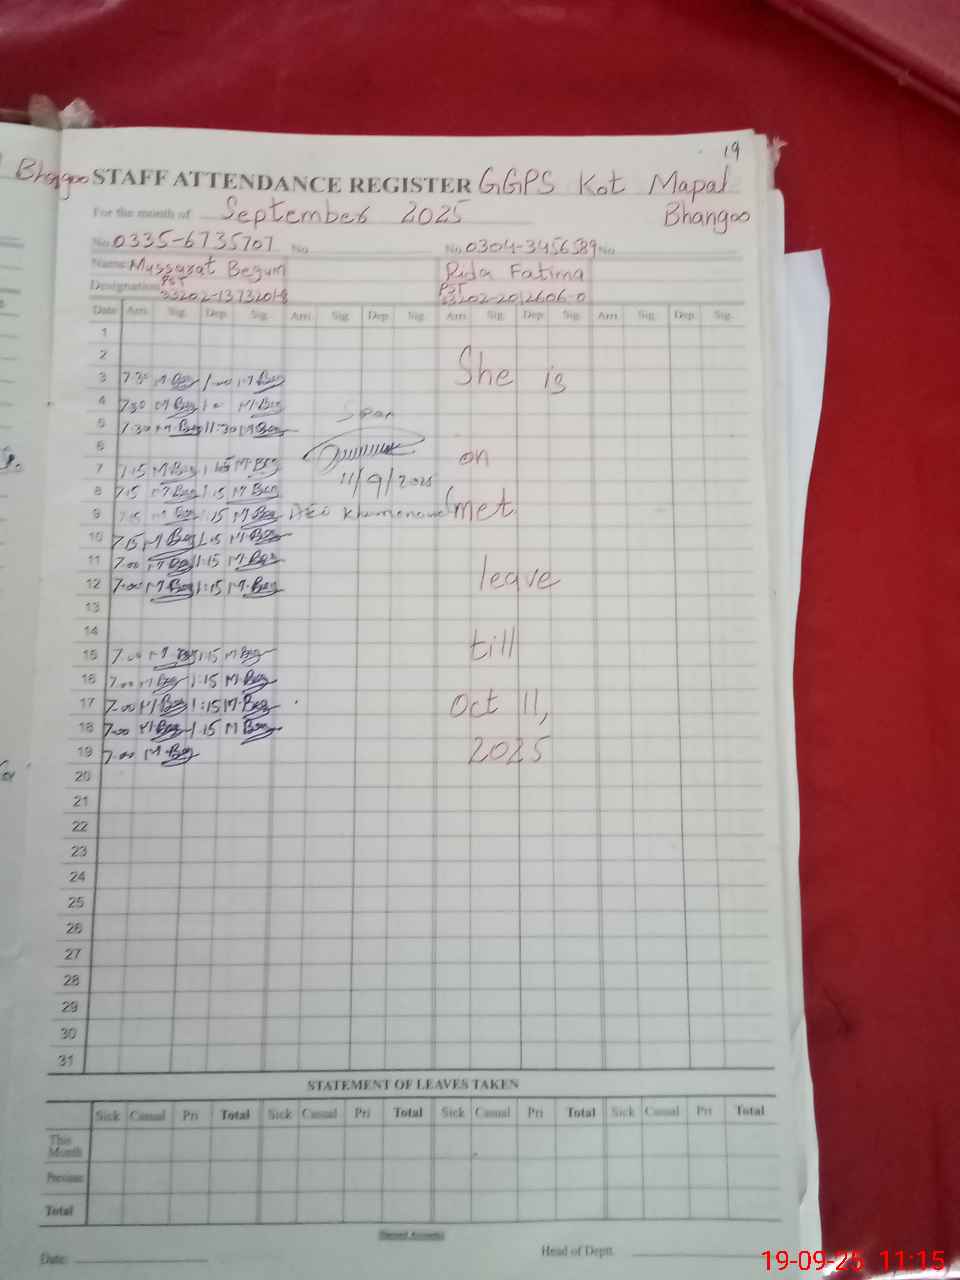 19
Bhangoo STAFF ATTENDANCE REGISTER GGPS Kot Mapal
For the month of September 2025 Bhangoo
No. 0335-6735707 No. No. 0304-3456589 No.
Name Mussarat Begum Rida Fatima
Designation PST PST
33202-1373201-8 33202-2012606-0
Date Arri. Sig. Dep. Sig. Arri. Sig. Dep. Sig. Arri. Sig. Dep. Sig. Arri. Sig. Dep. Sig.
1
2
3 7.30 M.Beg 1.00 M.Beg She is
4 7.30 M.Beg 1.00 M.Beg
5 7.30 M.Beg 11:30 M.Beg
6
7 7.15 M.Beg 1.15 M.Beg on
8 7.15 M.Beg 1.15 M.Beg 11/9/2025
9 7.15 M.Beg 1.15 M.Beg AEO met
10 7.15 M.Beg 1.15 M.Beg
11 7.00 M.Beg 1:15 M.Beg
12 7.00 M.Beg 1:15 M.Beg leave
13
14
15 7.00 M.Beg 1:15 M.Beg till
16 7.00 M.Beg 1:15 M.Beg
17 7.00 M.Beg 1:15 M.Beg Oct 11,
18 7.00 M.Beg 1.15 M.Beg
19 7.00 M.Beg 2025
20
21
22
23
24
25
26
27
28
29
30
31
STATEMENT OF LEAVES TAKEN
Sick Casual Pri Total Sick Casual Pri Total Sick Casual Pri Total Sick Casual Pri Total
This Month
Previous
Total
Date: Head of Deptt.
19-09-25 11:15